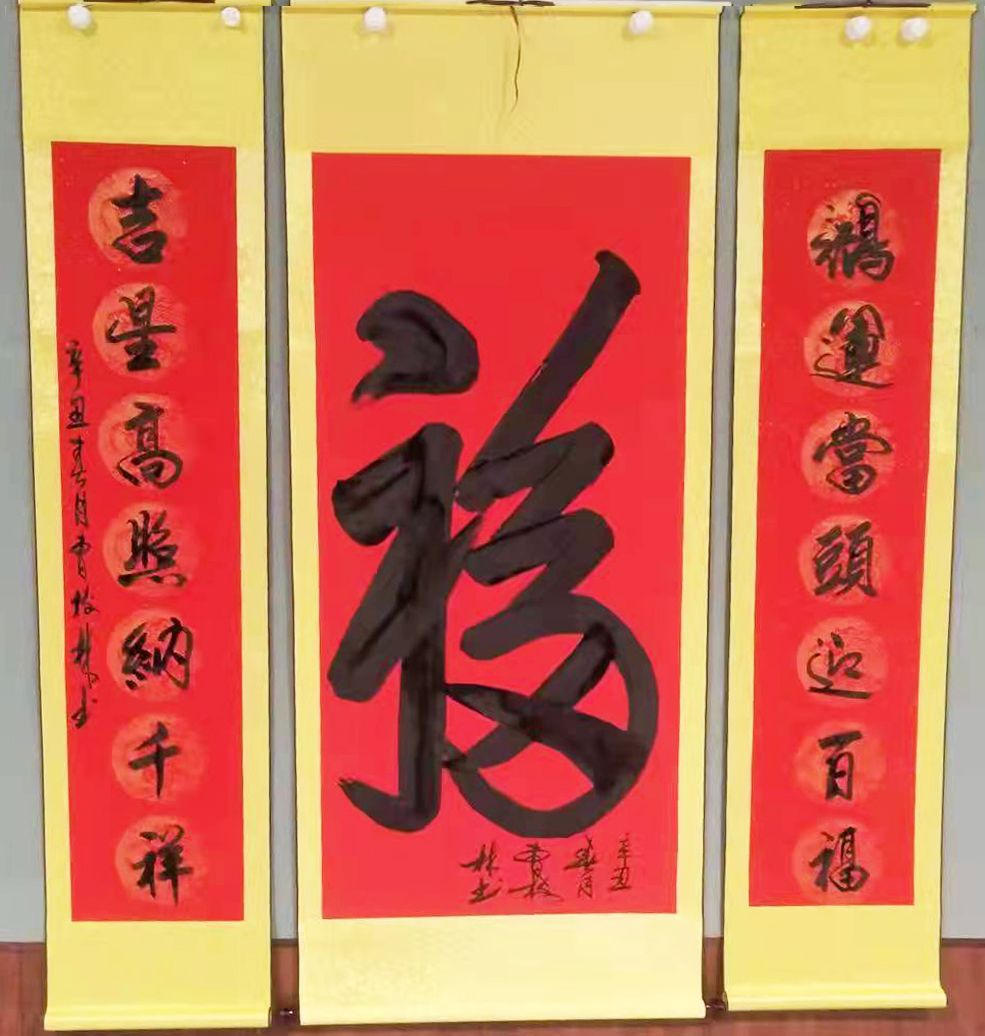 鴻運當頭迎百福
福
辛丑
春月
曹
林书
吉星高照納千祥
辛丑春月曹林书